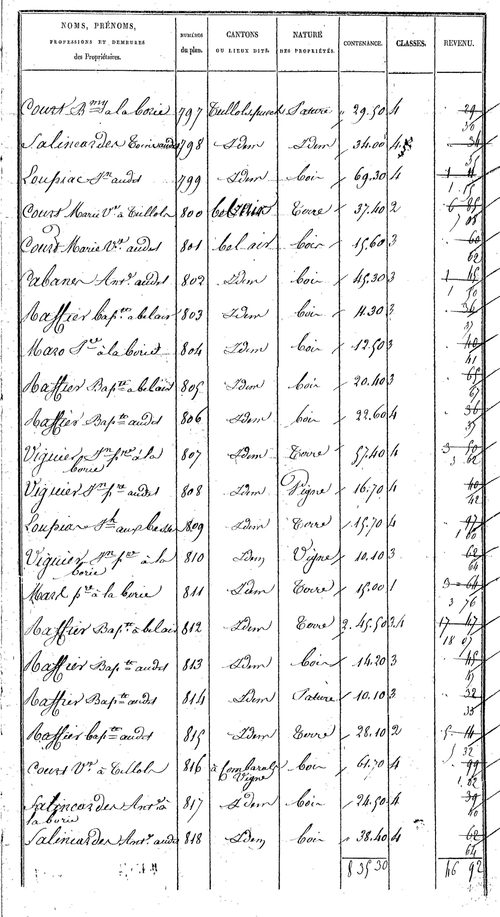 NOMS, PRÉNOMS, PROFESSIONS ET DEMEURES des Propriétaires. | NUMÉROS du plan. | CANTONS OU LIEUX DITS. | NATURE DES PROPRIÉTÉS. | CONTENANCE. | CLASSES. | REVENU.
Court Bmy à la borie 797 Pature 29.50 4 29 30
Salincardes audet 798 Idem Idem 34.00 4 34 35
Loupiac Jn audet 799 Idem boir 69.30 4 1 15
Court Marie Vve à Tillole 800 bel air Terre 37.40 2 6 85 7 08
Court Marie Vve audet 801 bel air boir 15.60 3 60 62
Cabanes Ant. audet 802 Idem boir 45.30 3 1 45 1 50
Raffier bapte à bel air 803 Idem boir 11.30 3 36 37
Maro à la borie 804 Idem boir 12.50 3 40 41
Raffier Bapte à bel air 805 Idem boir 20.40 3 65 67
Raffier Bapte audet 806 Idem boir 22.60 4 36 37
Viguier Jn pre à la borie 807 Idem Terre 57.40 4 3 50 3 62
Viguier Jn pre audet 808 Idem Vigne 16.70 4 40 42
Loupiac 809 Idem Terre 15.70 4 97 1 00
Viguier Jn pre à la borie 810 Idem Vigne 10.10 3 62 64
pre à la borie 811 Idem Terre 15.00 1 3 64 3 76
Raffier Bapte à bel air 812 Idem Terre 2.45.50 3.4 17 47 18 07
Raffier Bapte audet 813 Idem boir 14.20 3 45 47
Raffier Bapte audet 814 Idem Pature 10.10 3 32 33
Raffier bapte audet 815 Idem Terre 28.10 2 5 14 5 32
Court Vve à Tillole 816 à Combarals Vigne boir 61.70 4 99 1.02
Salincardes Ant. à la borie 817 Idem boir 24.50 4 39 40
Salincardes Ant. audet 818 Idem boir 38.40 4 62 64
8 35 30 46 92